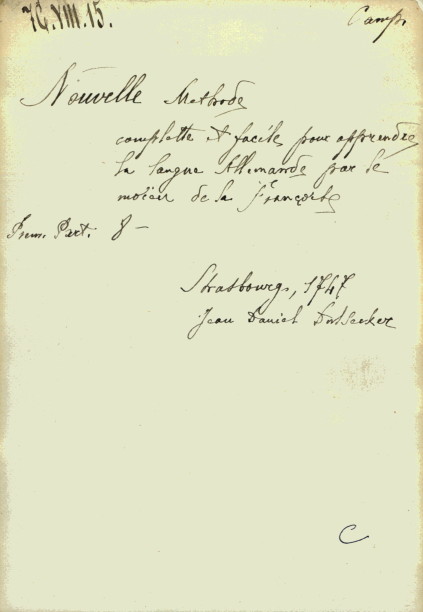 7C.VIII.15.
Camp.
Nouvelle Methode
complette et facile pour apprendre
la langue Allemande par le
moien de la Françoise
Prem. Part. 8–
Strasbourg, 1747
Jean Daniel Dulsecker
C